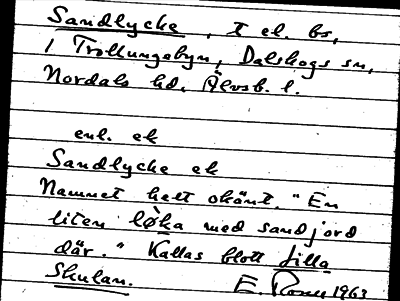 Sandlycke, t el. bs,
i Trollungebyn, Dalskogs sn,
Nordals hd. Älvsb. l.
enl. ek
Sandlycke ek
Namnet helt okänt. "En
liten løka med sandjord
där." Kallas blott Lilla
Skulan.
E 1963